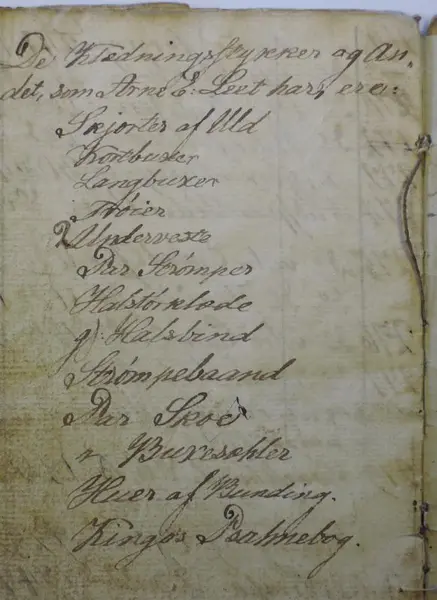 De Klædningsstykker og An,
det, som Arne E: Leet har, ere:
Skjorter af Uld
Kortbuxer
Langbuxer
Trøier
Underveste
Par Strømper
Halstørklæde
g): Halsbind
Strømpebaand
Par Skoe
Buxesæhler
Huer af Bunding.
Kingos Psalmebog.